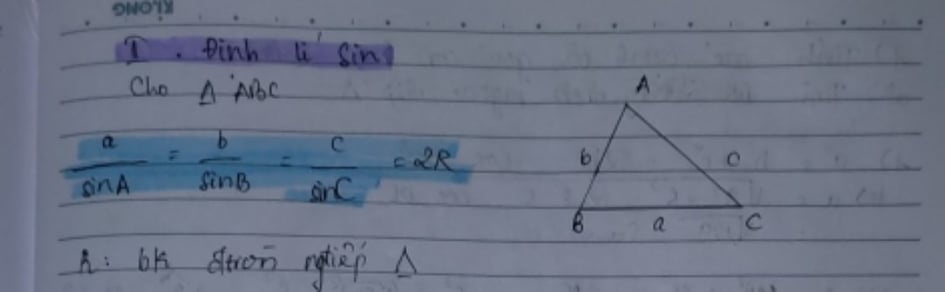 KLONG
I. Định lí sin
Cho Δ ABC
a/sinA = b/sinB = c/sinC = 2R
A
b c
B a C
R: bk đtròn ngtiếp Δ